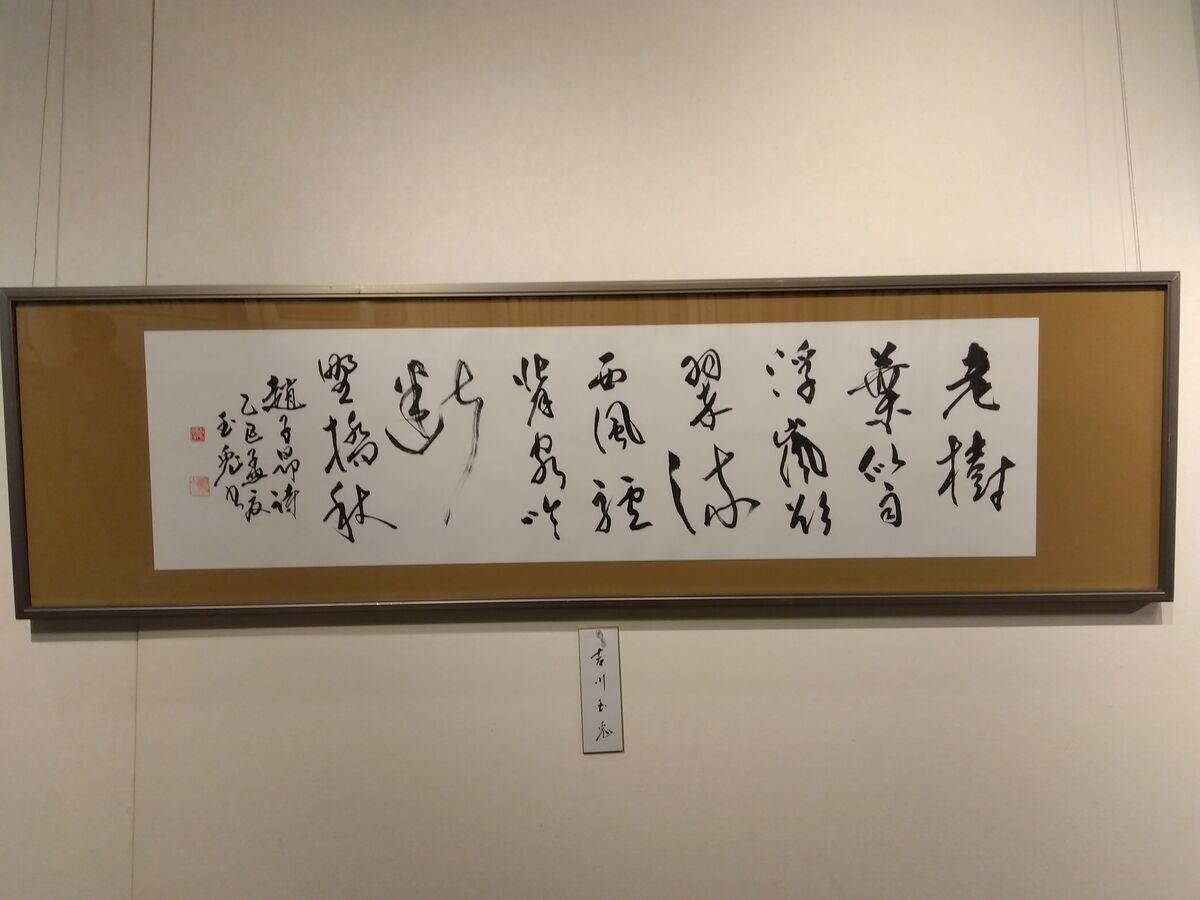 老樹
葉似雨
浮嵐欲
翠流
西風驢
背客吟
斷
野橋秋
趙子昂詩
乙巳孟夏
玉兎書
吉川玉兎